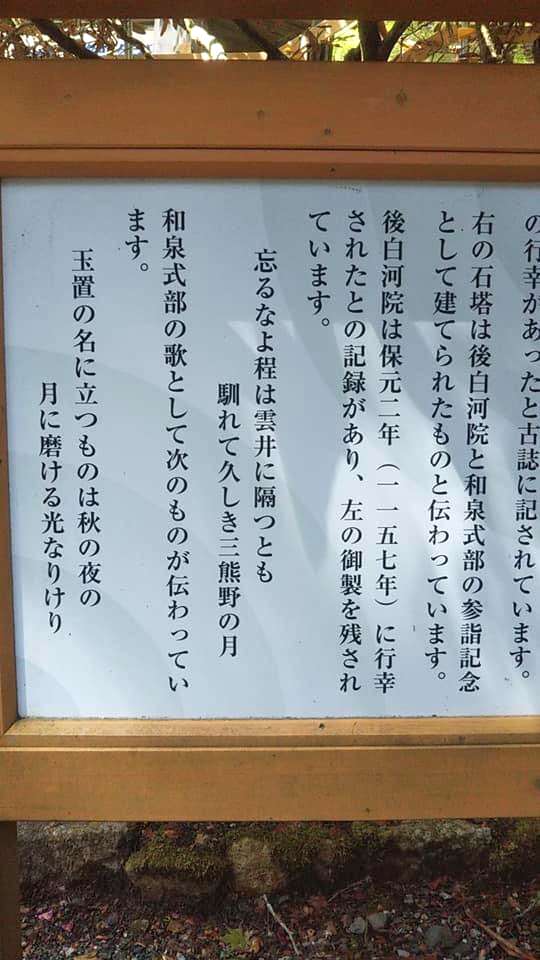 の行幸があったと古誌に記されています。
右の石塔は後白河院と和泉式部の参詣記念
として建てられたものと伝わっています。
後白河院は保元二年（一一五七年）に行幸
されたとの記録があり、左の御製を残され
ています。
忘るなよ程は雲井に隔つとも
馴れて久しき三熊野の月
和泉式部の歌として次のものが伝わってい
ます。
玉置の名に立つものは秋の夜の
月に磨ける光なりけり